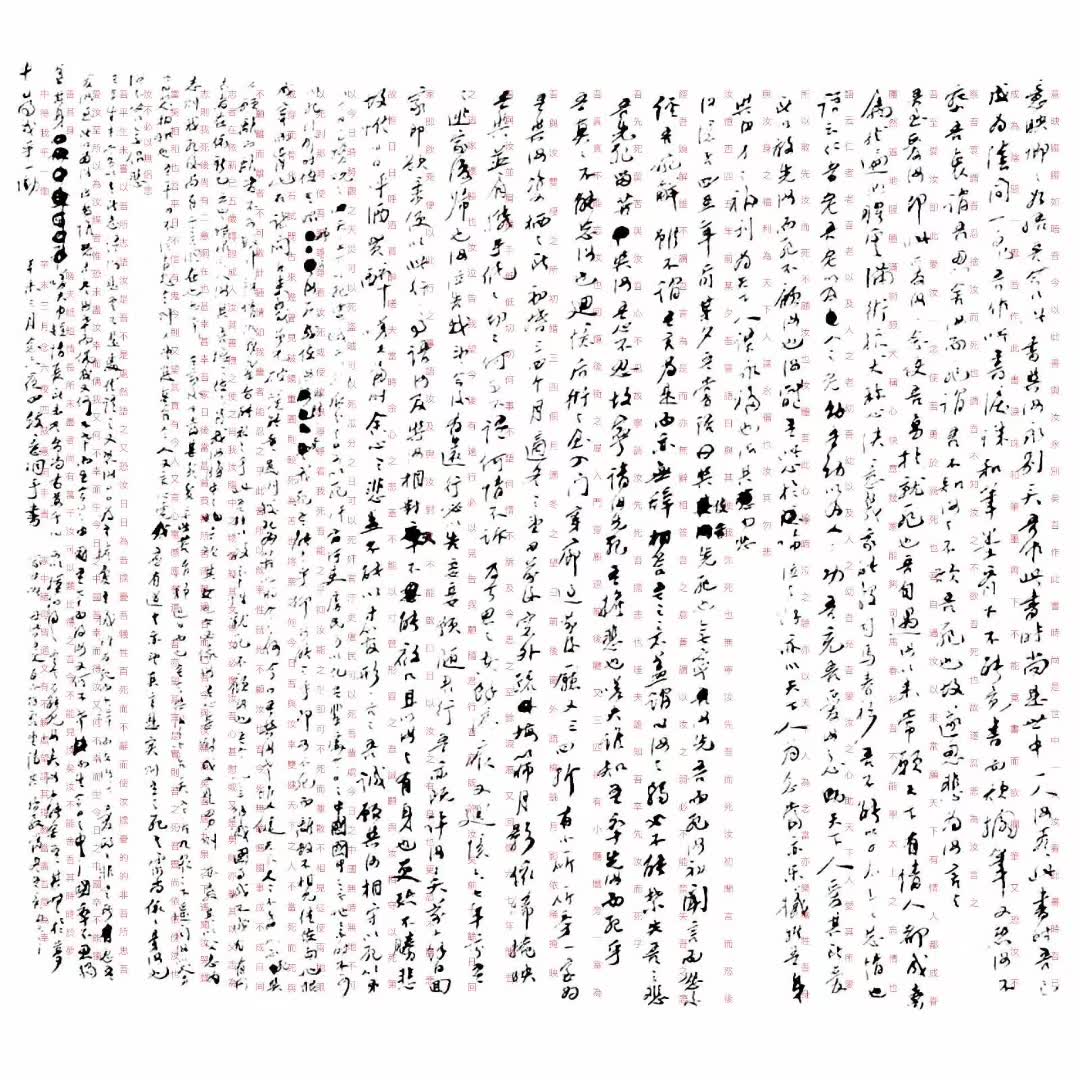 意映卿卿如晤吾今以此書與汝永別矣吾作此書時尚是世中一人汝看此書時吾已
成為陰間一鬼吾作此書淚珠和筆墨齊下不能竟書而欲擱筆又恐汝不
察吾衷謂吾忍舍汝而死謂吾不知汝之不欲吾死也故遂忍悲為汝言之
吾至愛汝即此愛汝一念使吾勇於就死也吾自遇汝以來常願天下有情人都成眷
屬然遍地腥雲滿街狼犬稱心快意幾家能彀司馬春衫吾不能學太上之忘情也
語云仁者老吾老以及人之老幼吾幼以及人之幼吾充吾愛汝之心助天下人愛其所愛
所以敢先汝而死不顧汝也汝體吾此心於啼泣之餘亦以天下人為念當亦樂犧牲吾身
與汝身之福利為天下人謀永福也汝其勿悲
汝憶否四五年前某夕吾嘗語曰與使吾先死也無寧汝先吾而死汝初聞言而怒後
經吾婉解雖不謂吾言為是而亦無辭相答吾之意蓋謂以汝之弱必不能禁失吾之悲
吾先死留苦與汝吾心不忍故寧請汝先死吾擔悲也嗟夫誰知吾卒先汝而死乎
吾真真不能忘汝也回憶後街之屋入門穿廊過前後廳又三四折有小廳廳旁一室為
吾與汝雙棲之所初婚三四個月適冬之望日前後窗外疏梅篩月影依稀掩映
吾與並肩攜手低低切切何事不語何情不訴及今思之空餘淚痕又迴憶六七年前吾之
逃家復歸也汝泣告我望今後有遠行必以告妾妾願隨君行吾亦既許汝矣前十餘日回
家即欲乘便以此行之事語汝及與汝相對又不能啟口且以汝之有身也更恐不勝悲
故惟日日呼酒買醉嗟夫當時余心之悲蓋不能以寸管形容之吾誠願與汝相守以死第
以今日事勢觀之天災可以死盜賊可以死瓜分之日可以死奸官污吏虐民可以死吾輩處今日之中國國中無地無時不可
以死到那時使吾眼睜睜看汝死或使汝眼睜睜看我死吾能之乎抑汝能之乎即可不死而離散不相見徒使兩地眼
成穿而骨化石試問古來幾曾見破鏡能重圓則較死為苦也將奈之何今日吾與汝幸雙健天下人人不當死而死與
不願離而離者不可數計鍾情如我輩者能忍之乎此吾所以敢率性就死不顧汝也吾今死無餘憾國事成不成自有同
志者在依新已五歲轉眼成人汝其善撫之使之肖我汝腹中之物吾疑其女也女必像汝吾心甚慰或又是男則亦教其以父志為
志則我死後尚有二意洞在也甚幸甚幸吾家後日當甚貧貧無所苦清靜過日而已吾今與汝無言矣吾居九泉之下遙聞汝哭聲
當哭相和也吾平日不信有鬼今則又望其真有今人又言心電感應有道吾亦望其言是實則吾之死吾靈尚依依旁汝也
汝不必以無侶悲
吾平生未嘗以吾所志語汝是吾不是處然語之又恐汝日日為吾擔憂吾犧牲百死而不辭而使汝擔憂的的非吾所思吾
愛汝至所以為汝謀者惟恐未盡汝幸而偶我又何不幸而生今日之中國吾幸而得汝又何不幸而生今日之中國卒不忍獨
善其身嗟夫巾短情長所未盡者尚有萬千汝可以模擬得之吾今不能見汝矣汝不能舍吾其時時於夢
中得我乎一慟 辛未三月念六夜四鼓意洞手書